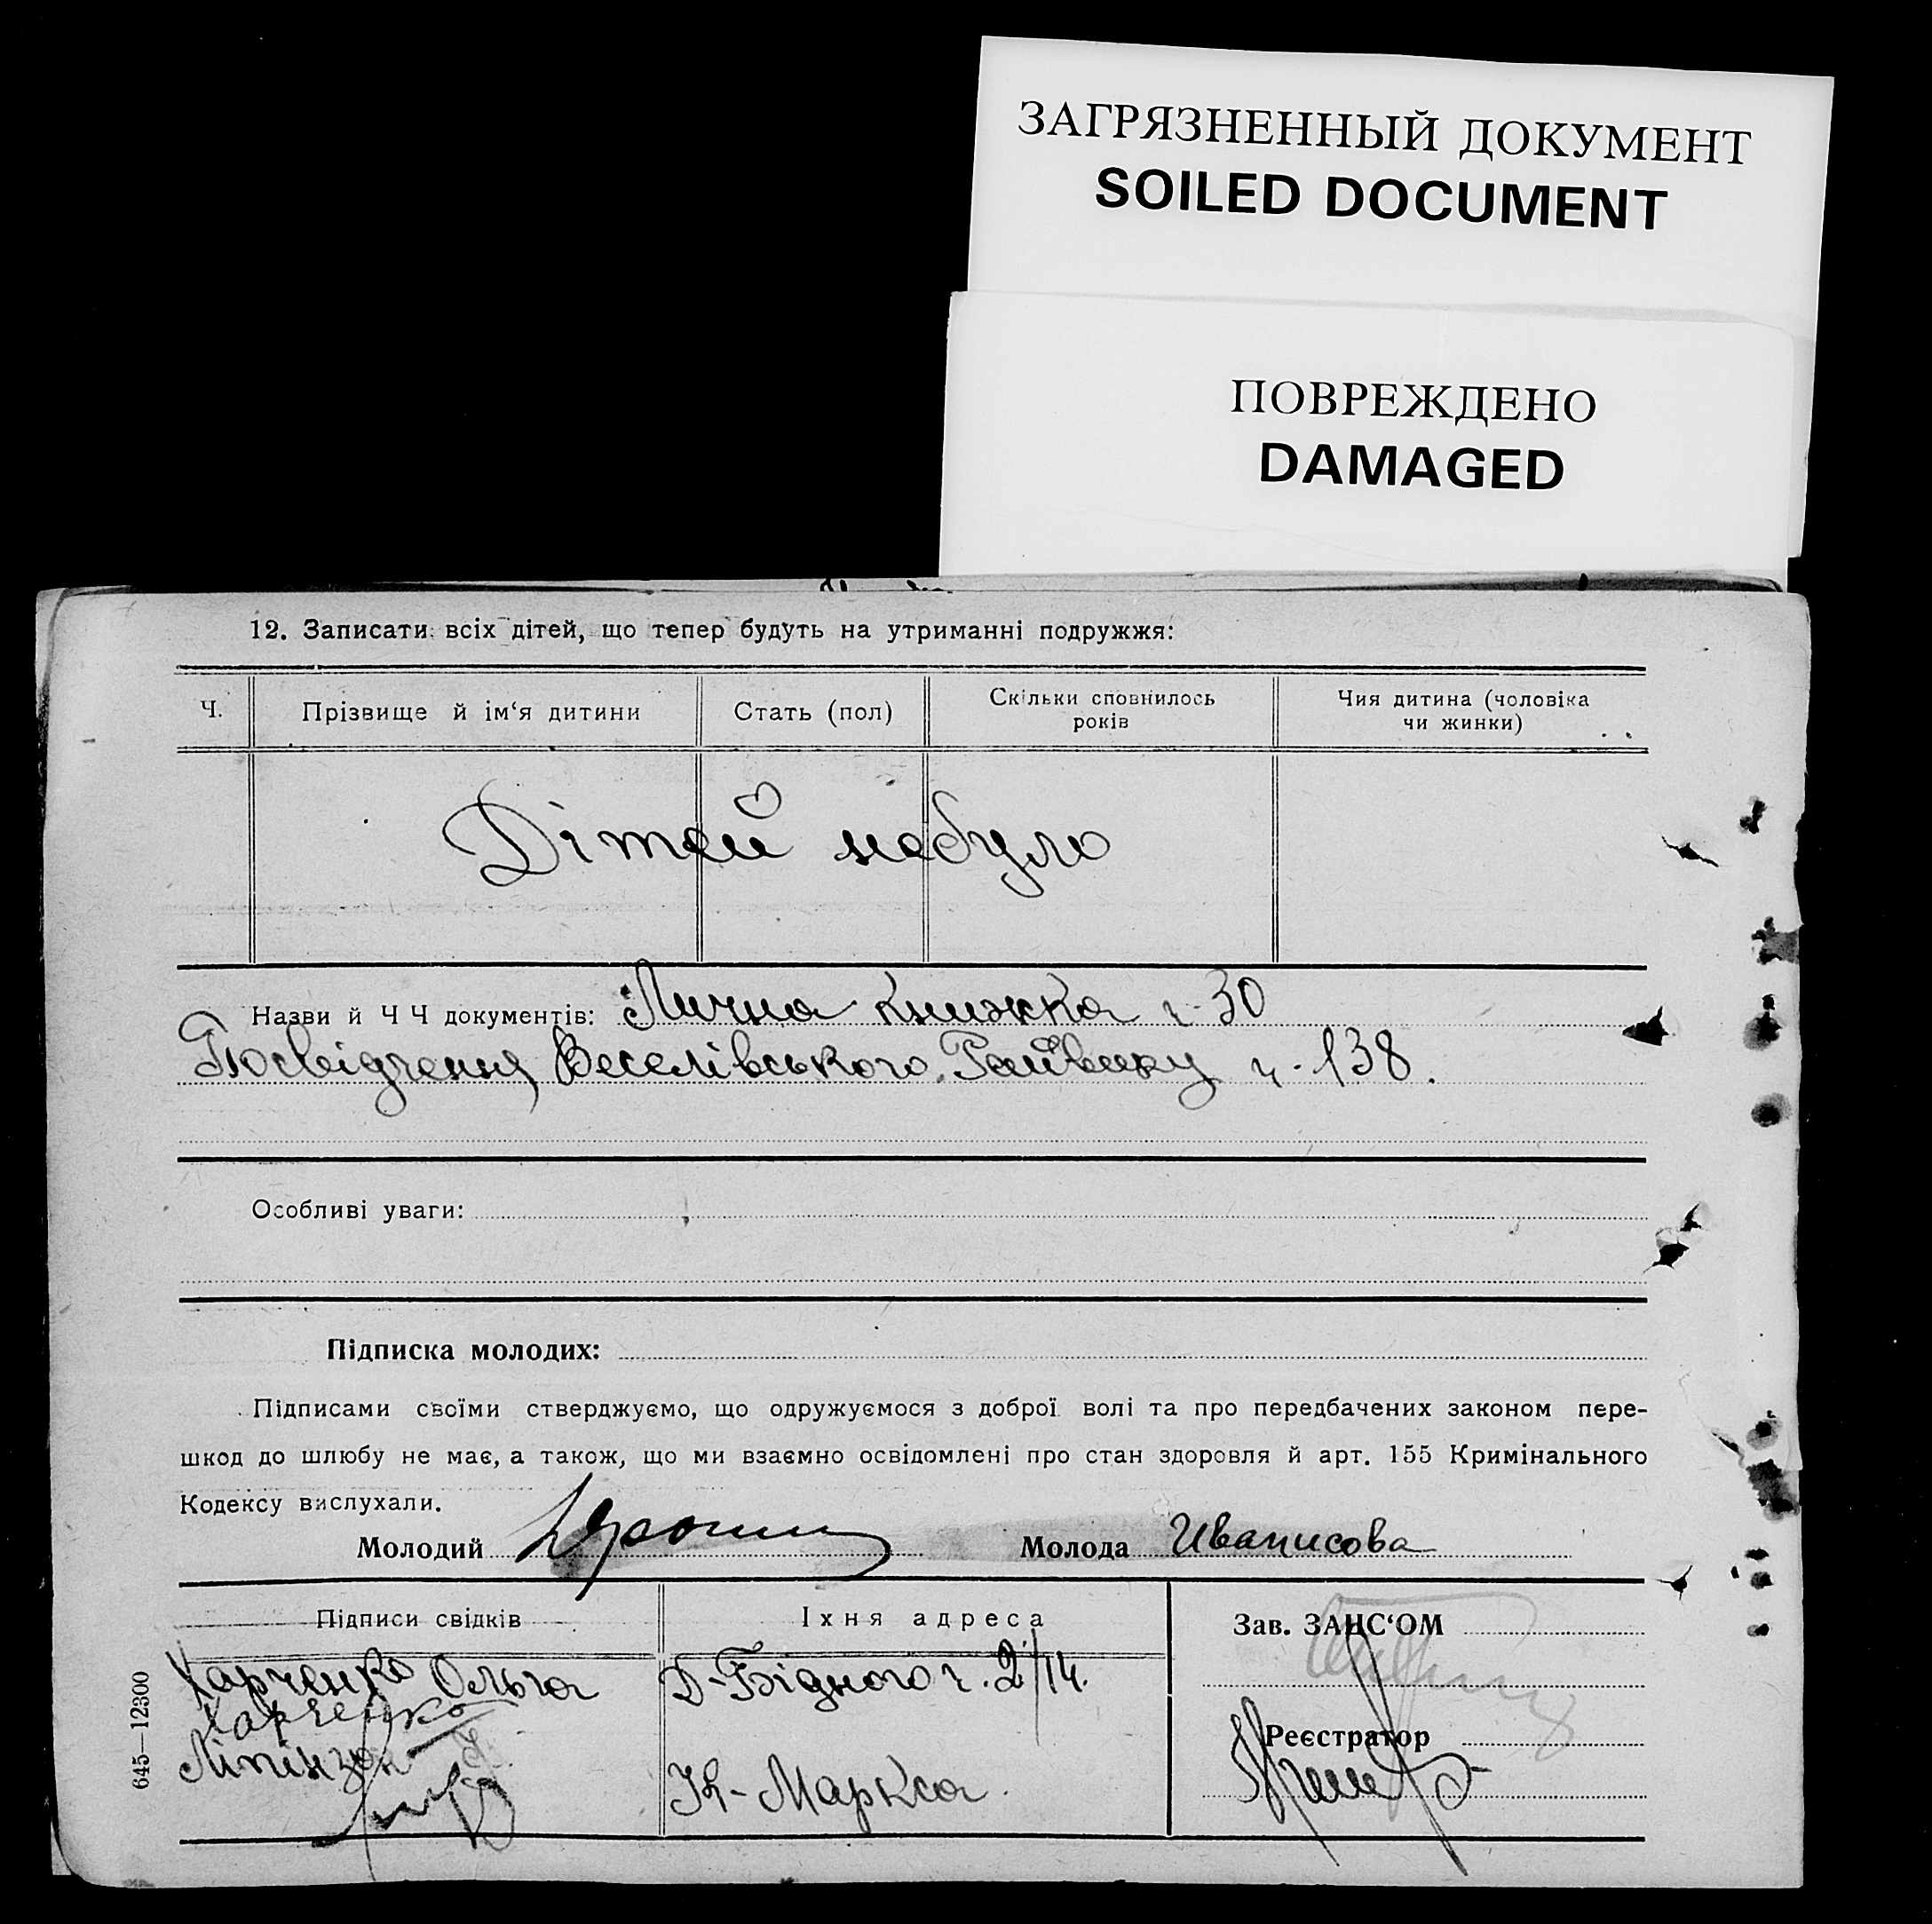 ЗАГРЯЗНЕННЫЙ ДОКУМЕНТ
SOILED DOCUMENT
ПОВРЕЖДЕНО
DAMAGED
12. Записати всіх дітей, що тепер будуть на утриманні подружжя:
Ч. Прізвище й ім‘я дитини Стать (пол) Скільки сповнилось років Чия дитина (чоловіка чи жинки)
Дітей небуло
Назви й Ч Ч документів: Лична книжка ч. 30
Посвідчення Веселівського Райвику ч. 138.
Особливі уваги:
Підписка молодих:
Підписами своїми стверджуємо, що одружуємося з доброї волі та про передбачених законом пере-
шкод до шлюбу не має, а також, що ми взаємно освідомлені про стан здоровля й арт. 155 Кримінального
Кодексу вислухали.
Молодий Молода
Підписи свідків Їхня адреса Зав. ЗАЦС‘ОМ
Харченко Ольга Д-Бідного ч. 2/14.
Харченко
Реєстратор
К-Маркса.
645—12300